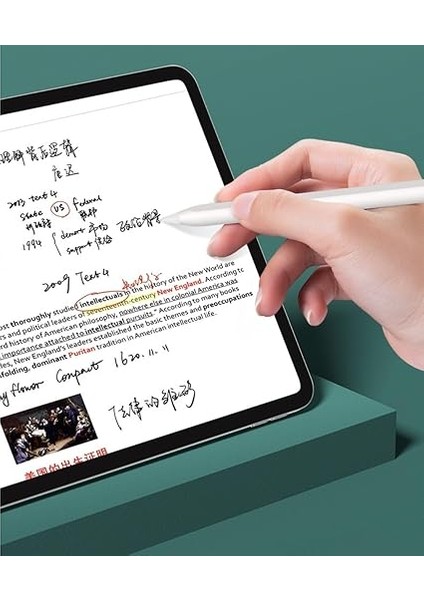 理解背后逻辑
唐迟
2013 text 4
State US federal
州政府 联邦
1994
support
2009 Text 4
ost thoroughly studied intellectuals in the history of the New World are
rs and political leaders of seventeenth-century New England. According to
rd history of American philosophy, nowhere else in colonial America was
importance attached to intellectual pursuits." According to many books
les, New England's leaders established the basic themes and preoccupations
nfolding, dominant Puritan tradition in American intellectual life.
yflower Compact 1620.11.11
法律的
美国的出生证明